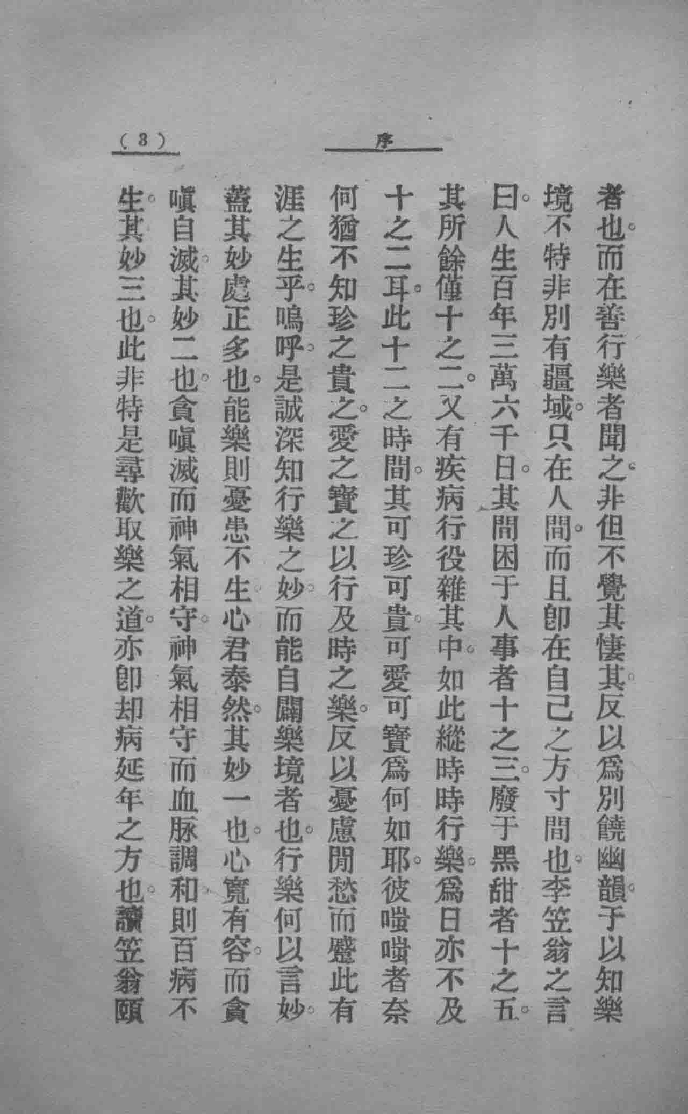 序
(3)
者也。而在善行樂者聞之。非但不覺其悽其。反以爲別饒幽韻。于以知樂
境不特非別有疆域。只在人間。而且卽在自己之方寸間也。李笠翁之言
曰。人生百年三萬六千日。其間困于人事者十之三。廢于黑甜者十之五。
其所餘僅十之二。又有疾病行役雜其中。如此縱時時行樂。爲日亦不及
十之二耳。此十二之時間。其可珍可貴。可愛可寶爲何如耶。彼嗤嗤者奈
何猶不知珍之貴之。愛之寶之以行及時之樂。反以憂慮閒愁而蹙此有
涯之生乎。嗚呼。是誠深知行樂之妙。而能自闢樂境者也。行樂何以言妙。
蓋其妙處正多也。能樂則憂患不生心君泰然。其妙一也。心寬有容。而貪
嗔自滅。其妙二也。貪嗔滅而神氣相守。神氣相守而血脉調和。則百病不
生。其妙三也。此非特是尋歡取樂之道。亦卽却病延年之方也。讀笠翁頤